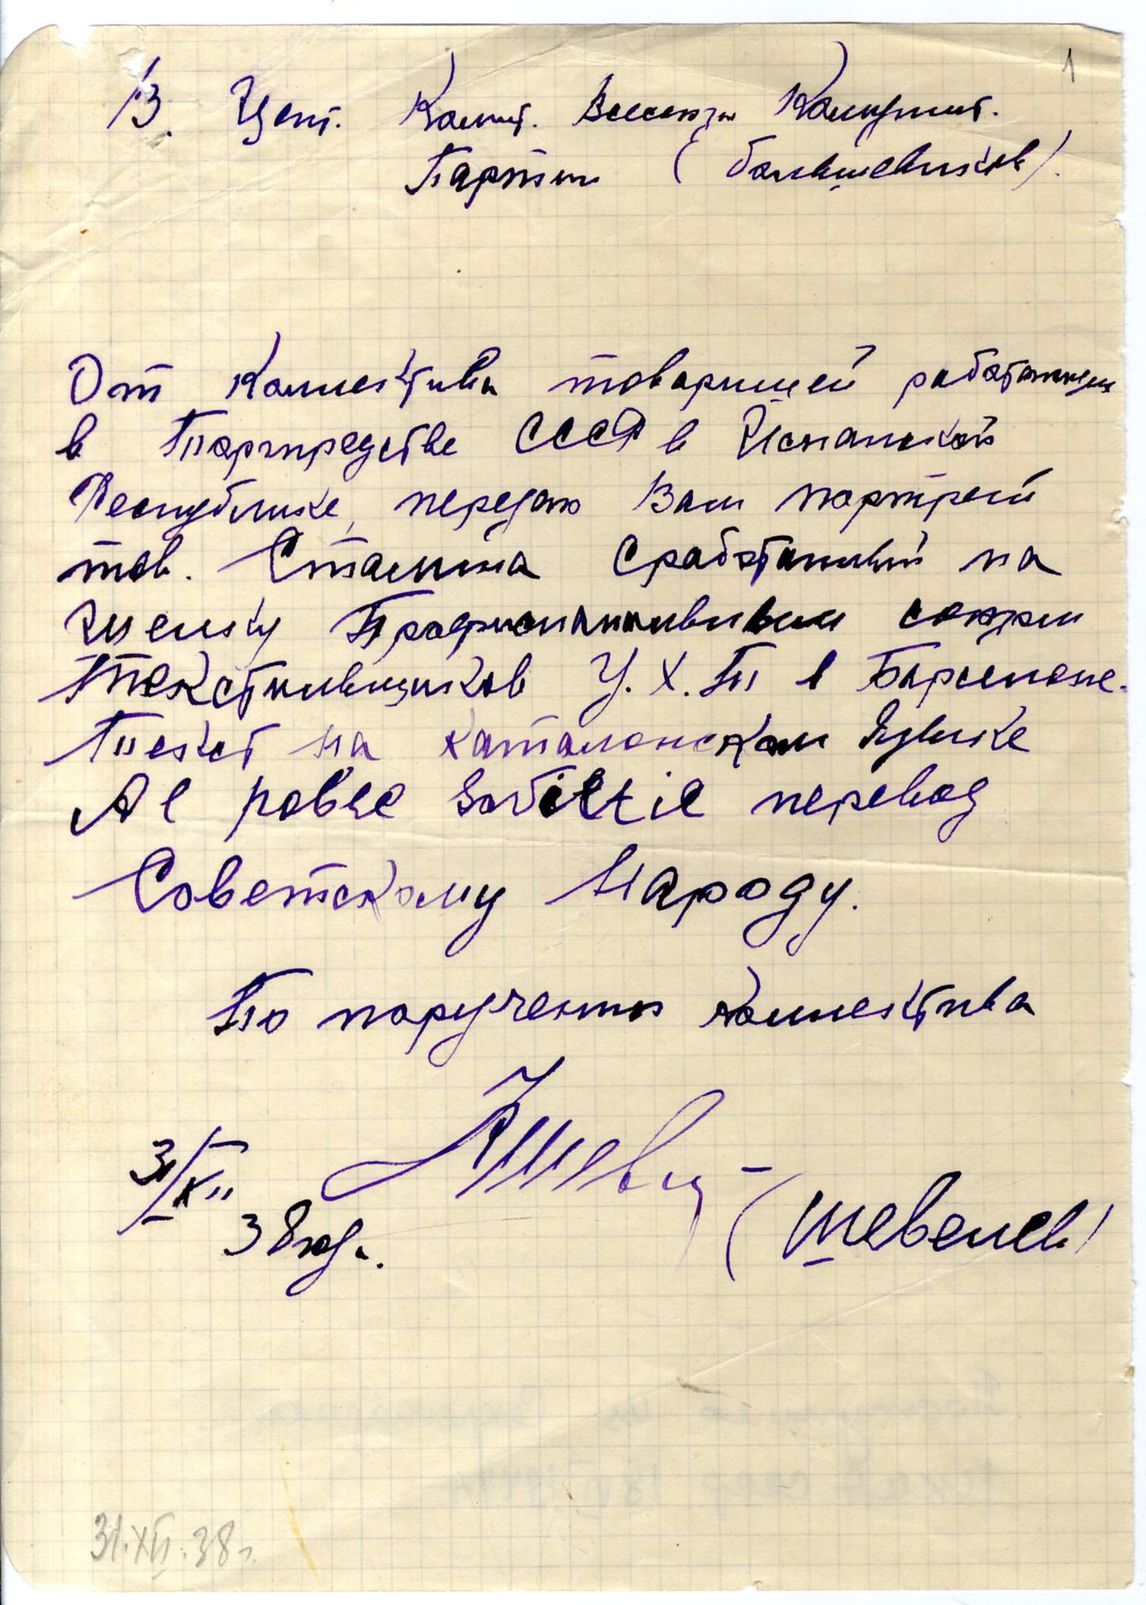 1
В. Цент. Комит. Всесоюзн Комунист.
Партии (большевиков).
От Коллектива товарищей работающих
в Торгпредстве СССР в Испанской
Республике, передаю Вам портрет
тов. Сталина сработанный на
шелку Професиональным союзом
Текстильщиков У.Х.Т в Барселоне.
Текст на каталонском Языке
Al poble Sovietic перевод
Советскому Народу.
По поручению коллектива
31/XII
38 год.
(Шевелев)
31.XII.38 г.